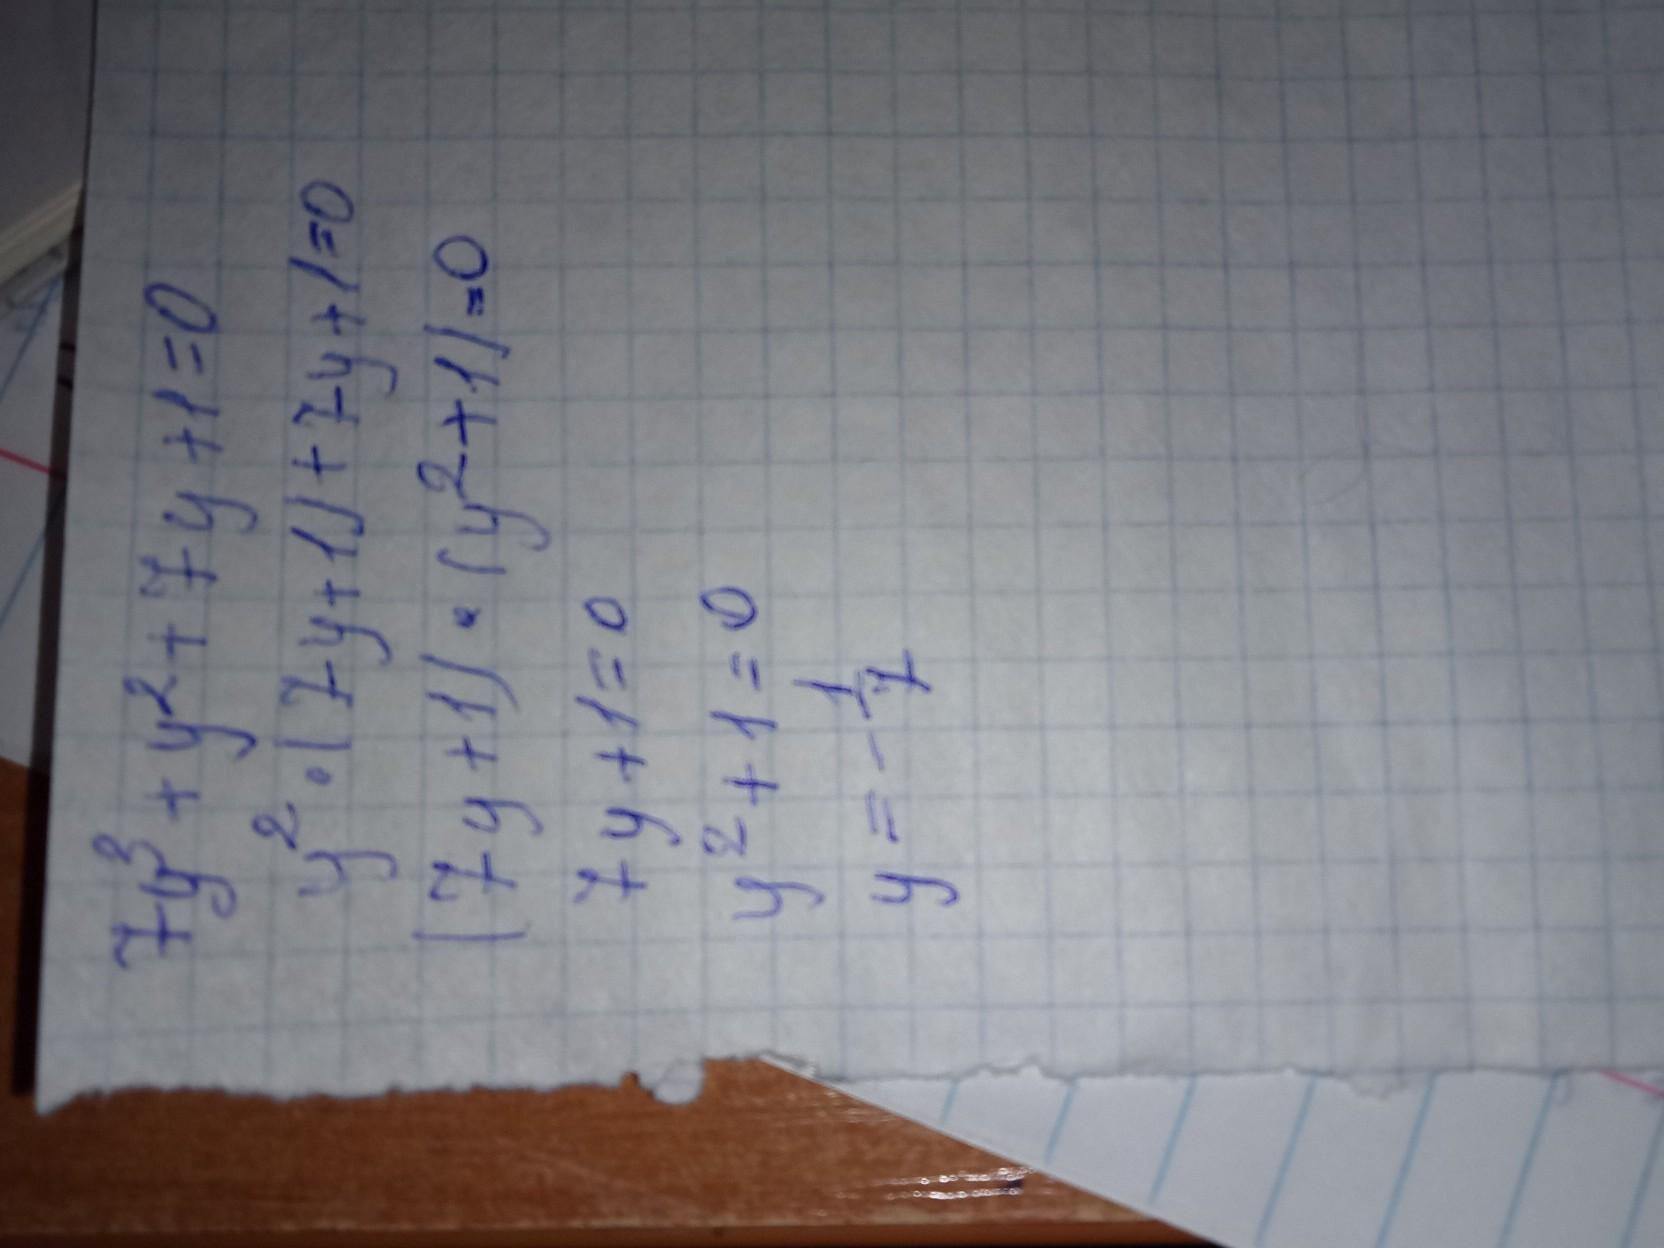 7y³+y²+7y+1=0
y²·(7y+1)+7y+1=0
(7y+1)·(y²+1)=0
7y+1=0
y²+1=0
y=-1/7